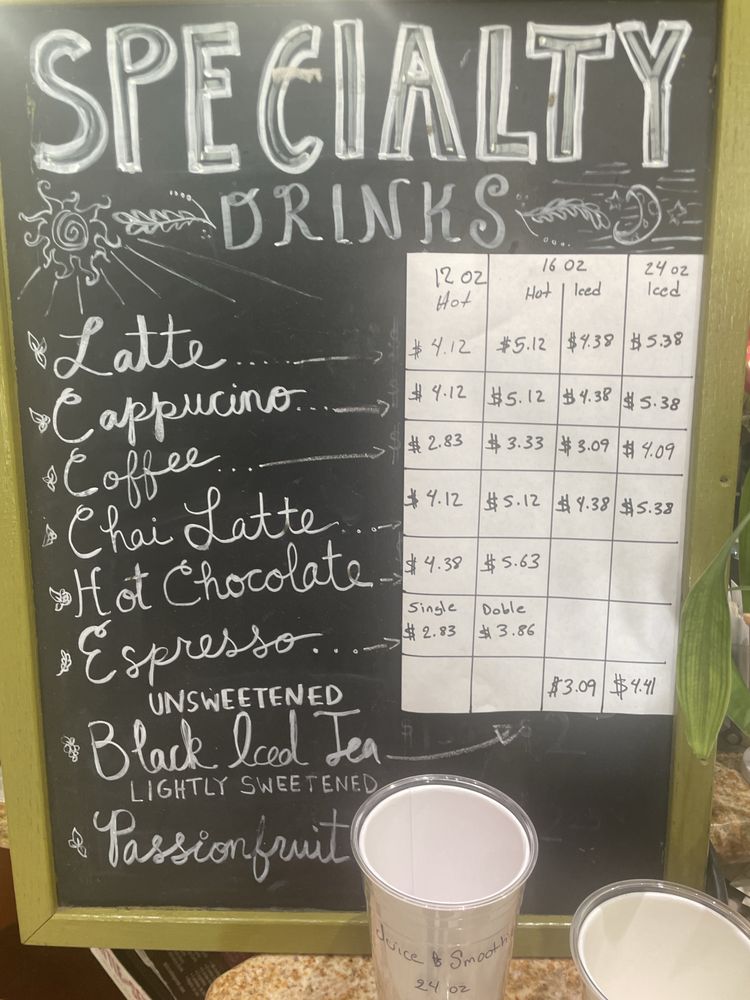 SPECIALTY
DRINKS
12 OZ 16 OZ 24 OZ
Hot Hot Iced Iced
Latte.... $4.12 $5.12 $4.38 $5.38
Cappucino... $4.12 $5.12 $4.38 $5.38
Coffee... $2.83 $3.33 $3.09 $4.09
Chai Latte... $4.12 $5.12 $4.38 $5.38
Hot Chocolate $4.38 $5.63
Single Doble
Espresso... $2.83 $3.86
UNSWEETENED
Black Iced Tea $3.09 $4.41
LIGHTLY SWEETENED
Passionfruit
Juice & Smoothi
24 oz